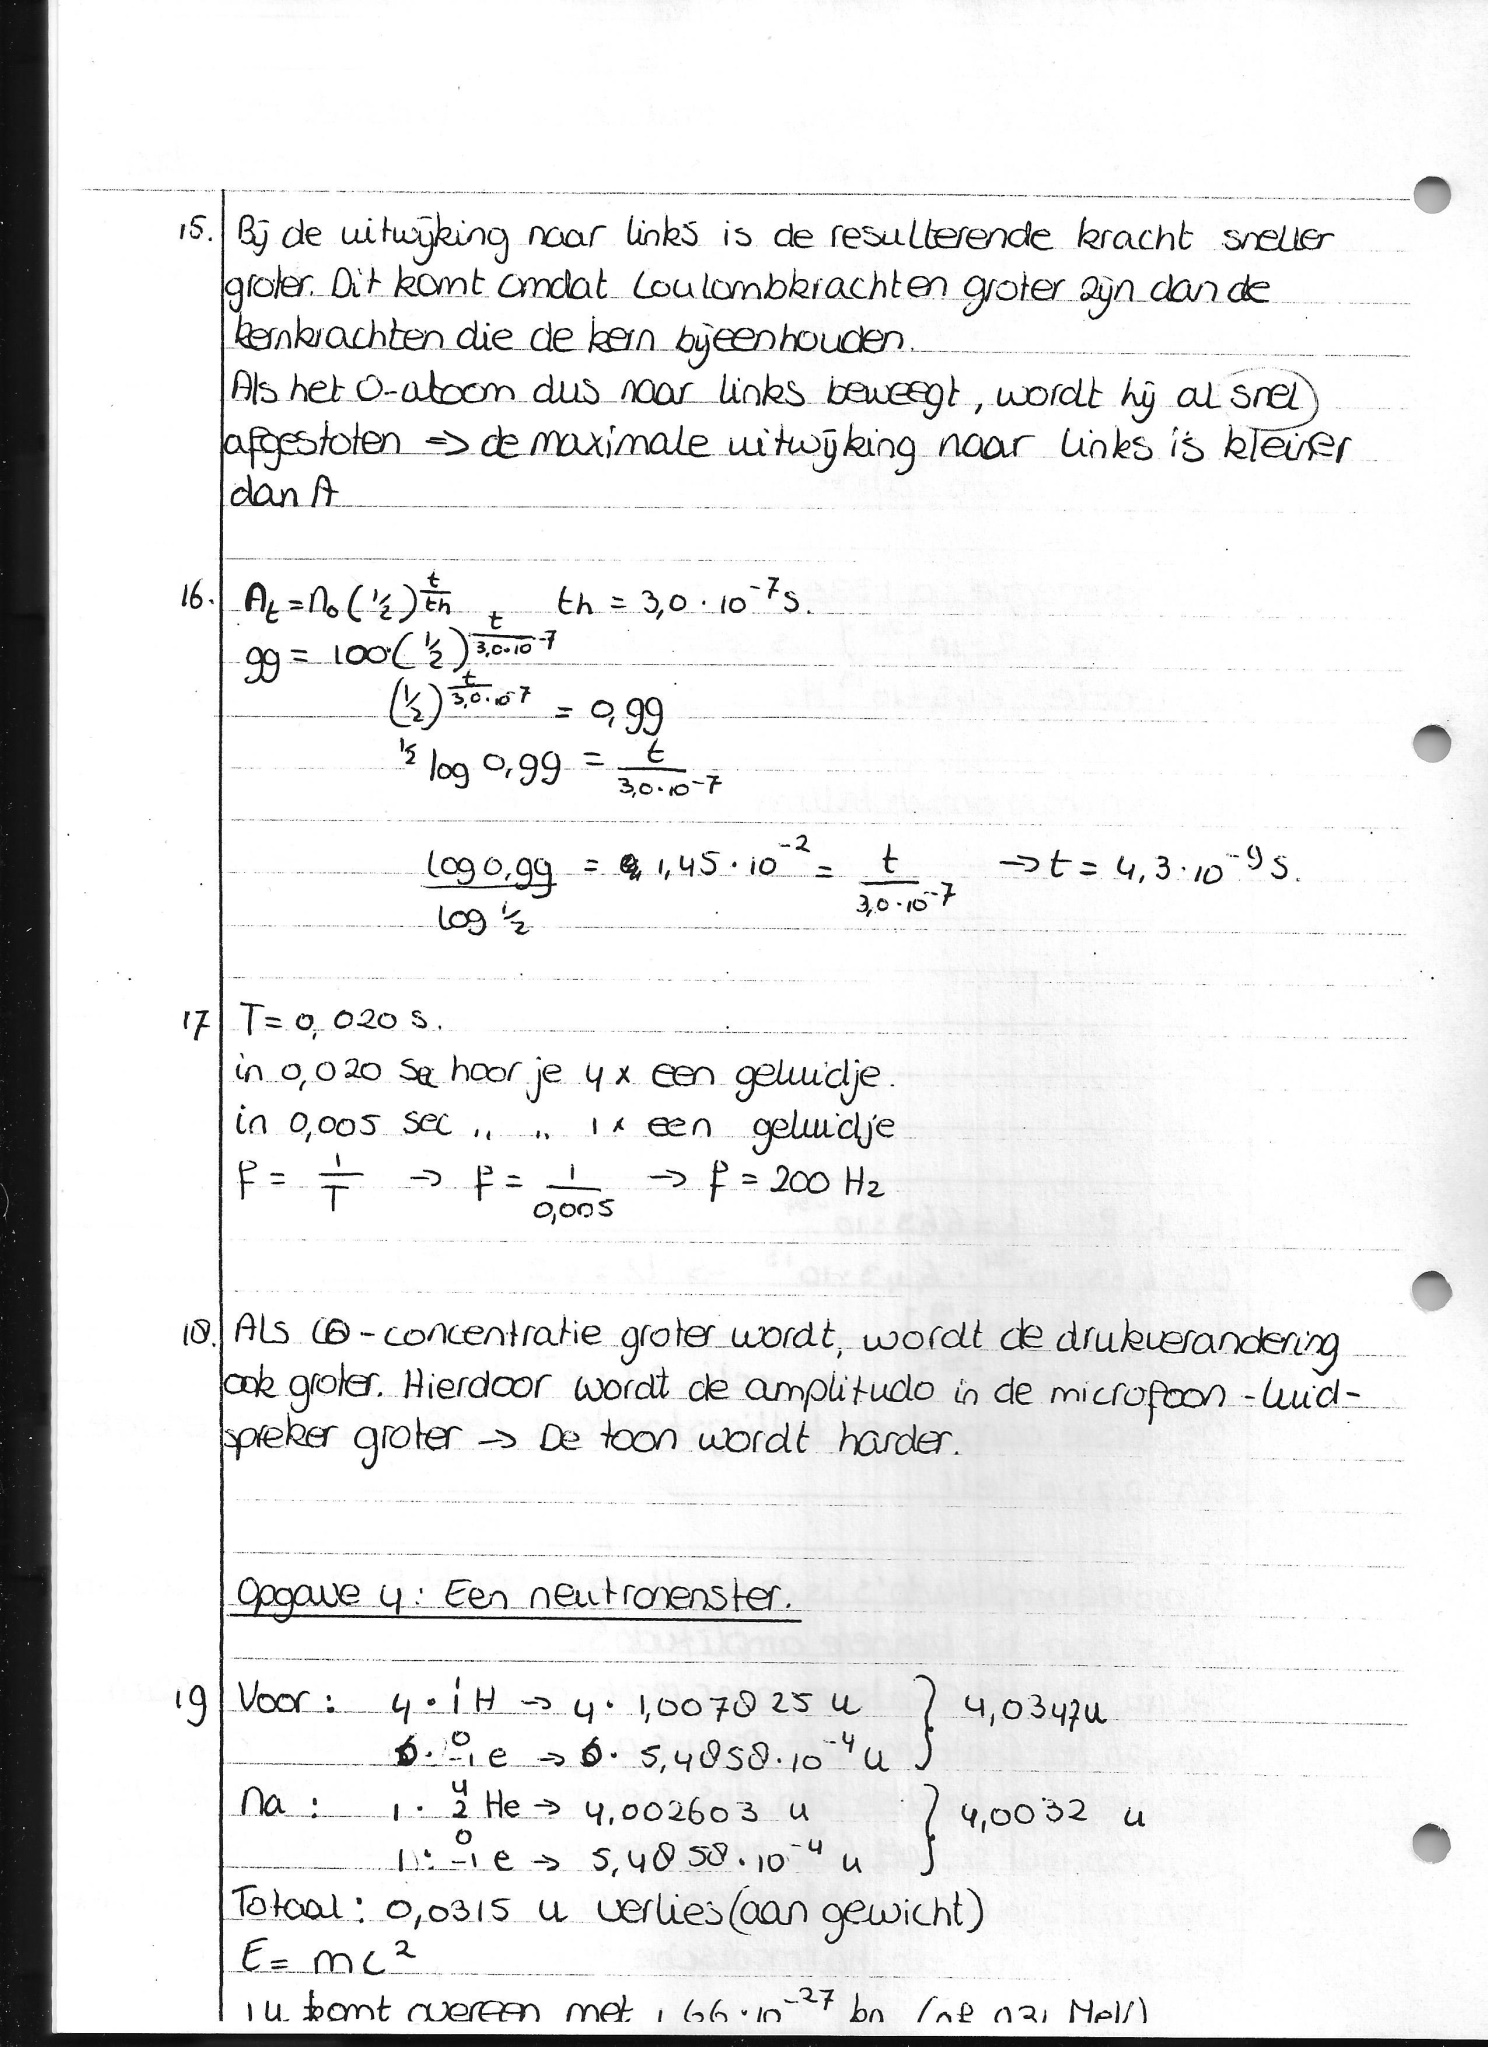 15. Bij de uitwijking naar links is de resulterende kracht sneller
groter. Dit komt omdat Coulombkrachten groter zijn dan de
kernkrachten die de kern bijeenhouden.
Als het O-atoom dus naar links beweegt, wordt hij al snel
afgestoten => de maximale uitwijking naar links is kleiner
dan A
16. At = n0 (1/2)^(t/th) th = 3,0 · 10^-7 s.
99 = 100·(1/2)^(t/(3,0·10^-7))
(1/2)^(t/(3,0·10^-7)) = 0,99
^1/2 log 0,99 = t/(3,0·10^-7)
log 0,99 / log 1/2 = 1,45 · 10^-2 = t/(3,0·10^-7) → t = 4,3 · 10^-9 s.
17 T = 0,020 s.
in 0,020 sec hoor je 4 x een geluidje.
in 0,005 sec ,, ,, 1 x een geluidje
f = 1/T → f = 1/0,005 → f = 200 Hz
18. Als CO-concentratie groter wordt, wordt de drukverandering
ook groter. Hierdoor wordt de amplitudo in de microfoon-luid-
spreker groter → De toon wordt harder.
Opgave 4: Een neutronenster.
19 Voor: 4 · ¹₁H → 4 · 1,007825 u } 4,0347u
6 · ⁰₋₁e → 6 · 5,4858·10^-4 u
Na: 1 · ⁴₂He → 4,002603 u } 4,0032 u
1 · ⁰₋₁e → 5,4858·10^-4 u
Totaal: 0,0315 u verlies (aan gewicht)
E = mc²
1 u komt overeen met 1,66·10^-27